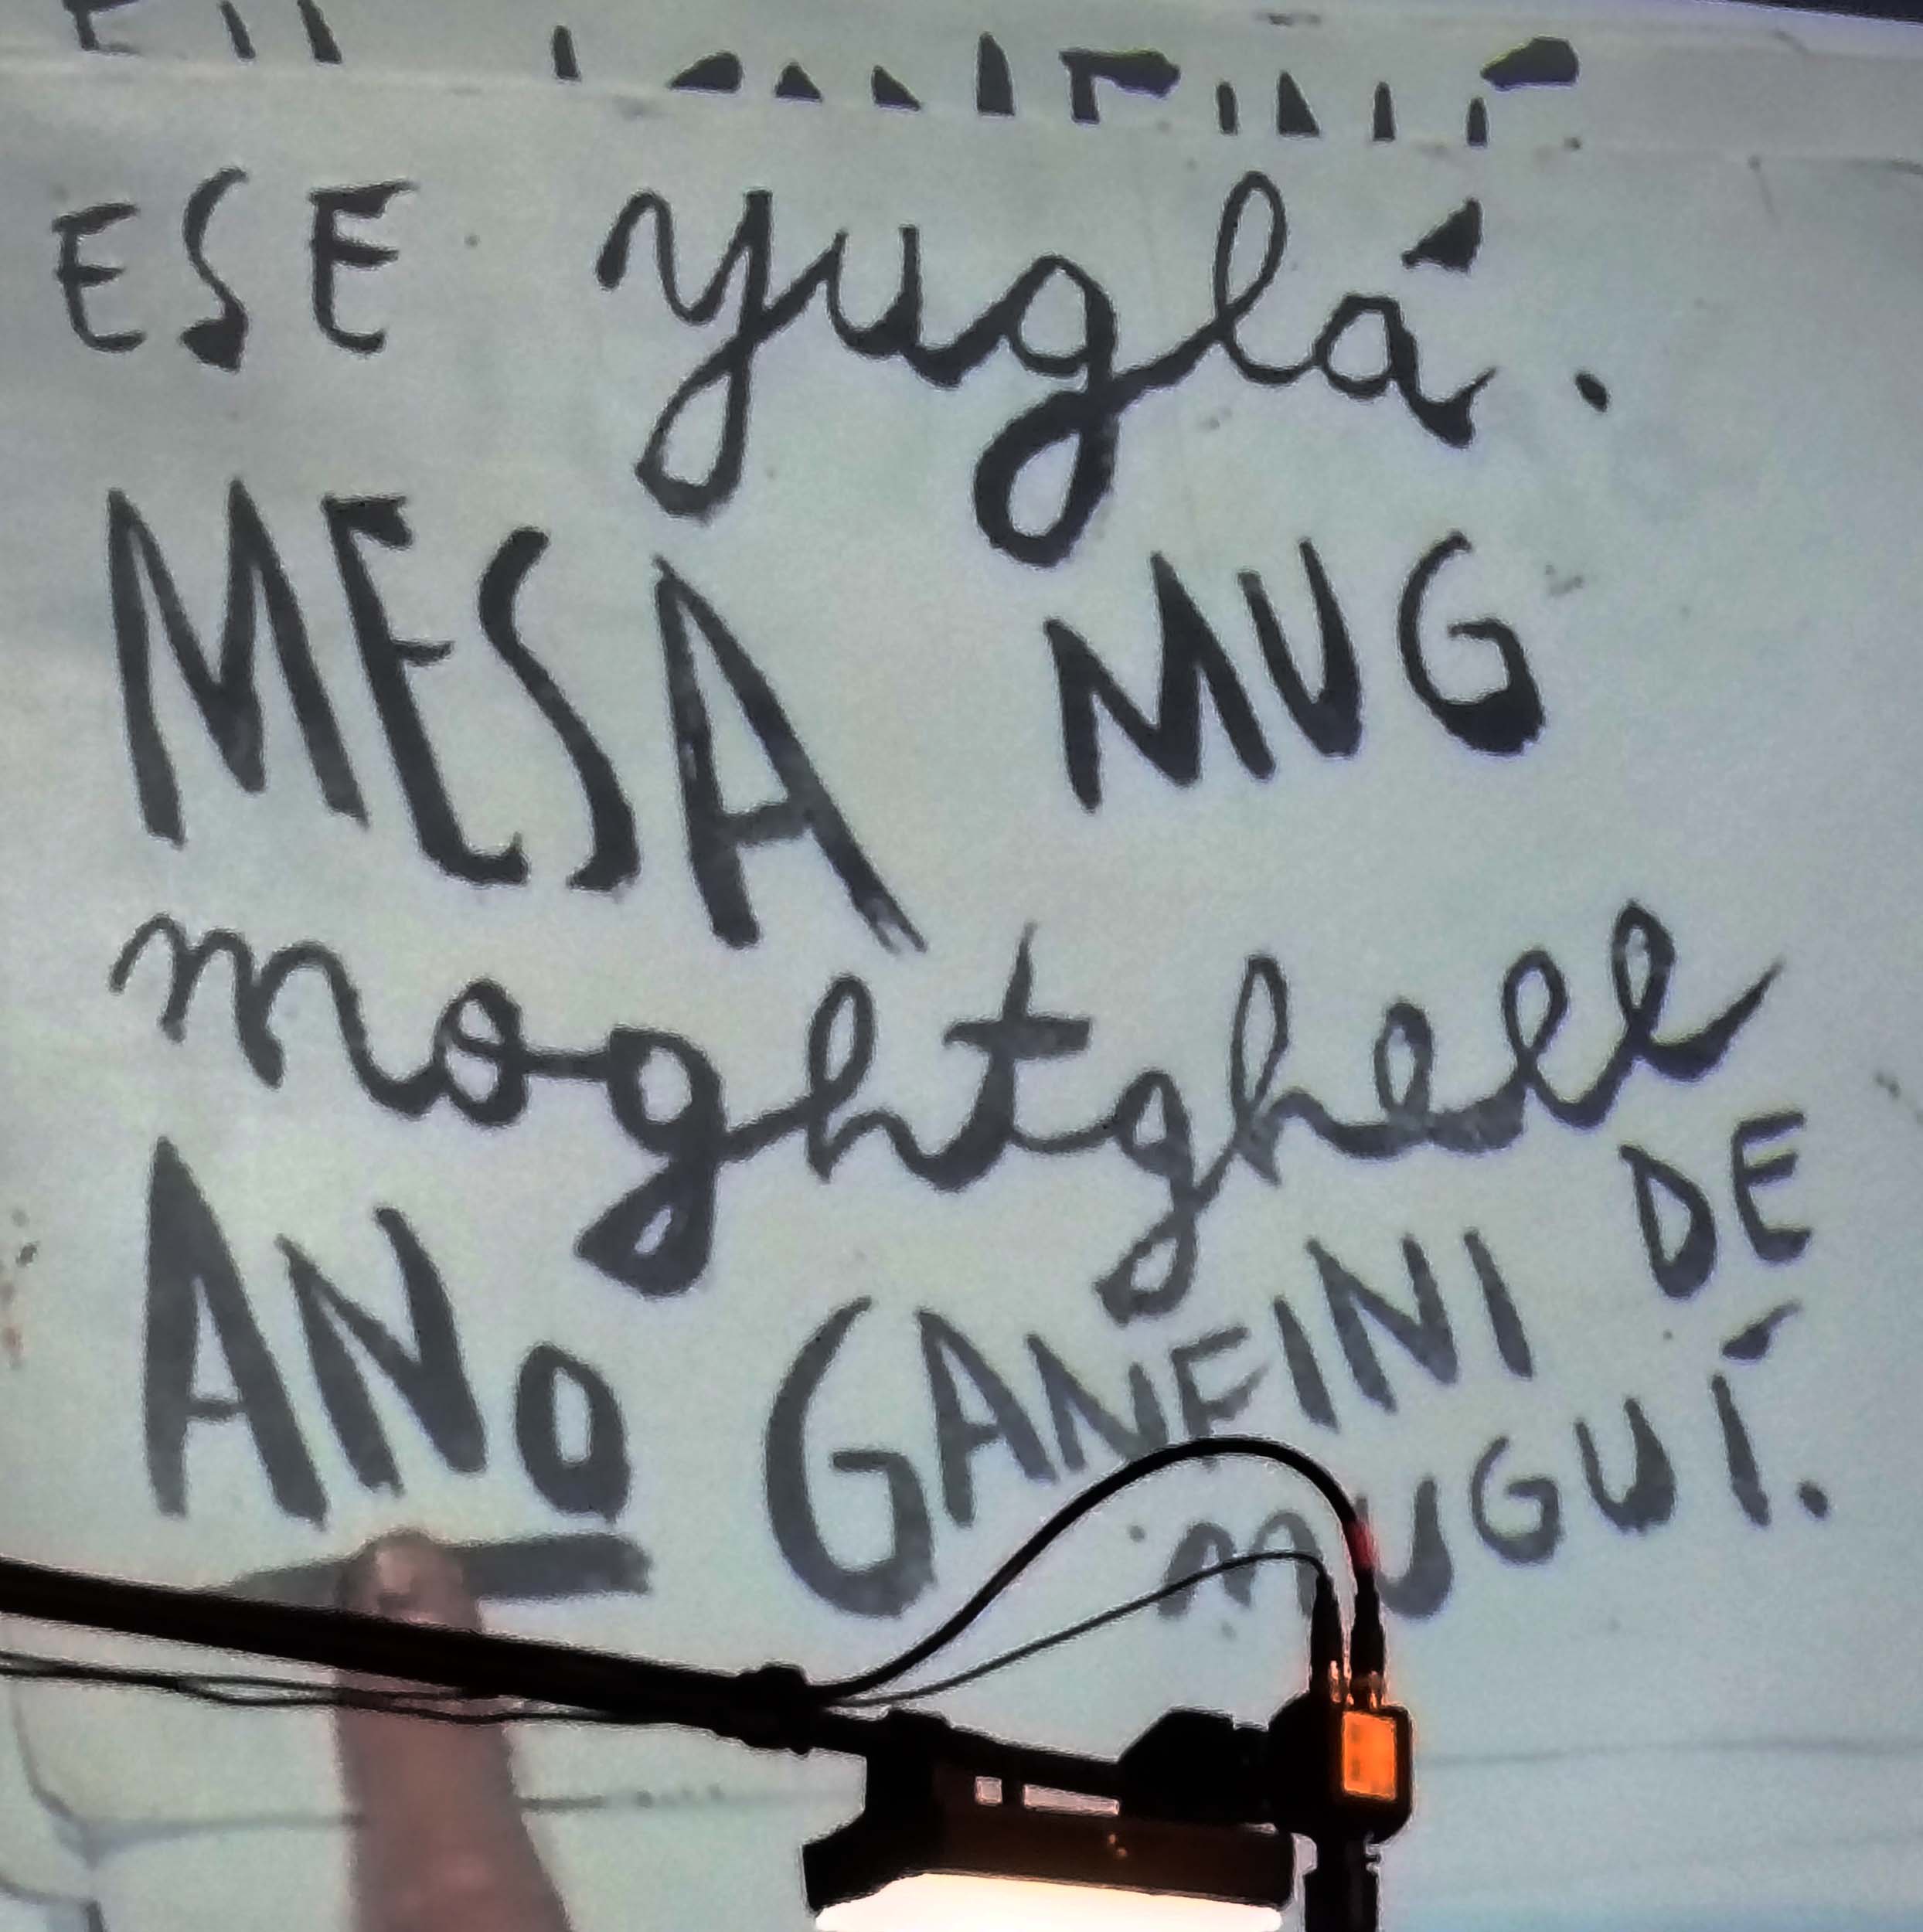 ESE yuglá.
MESA MUG
moghtghell
ANo GANFINI DE
MUGUÍ.